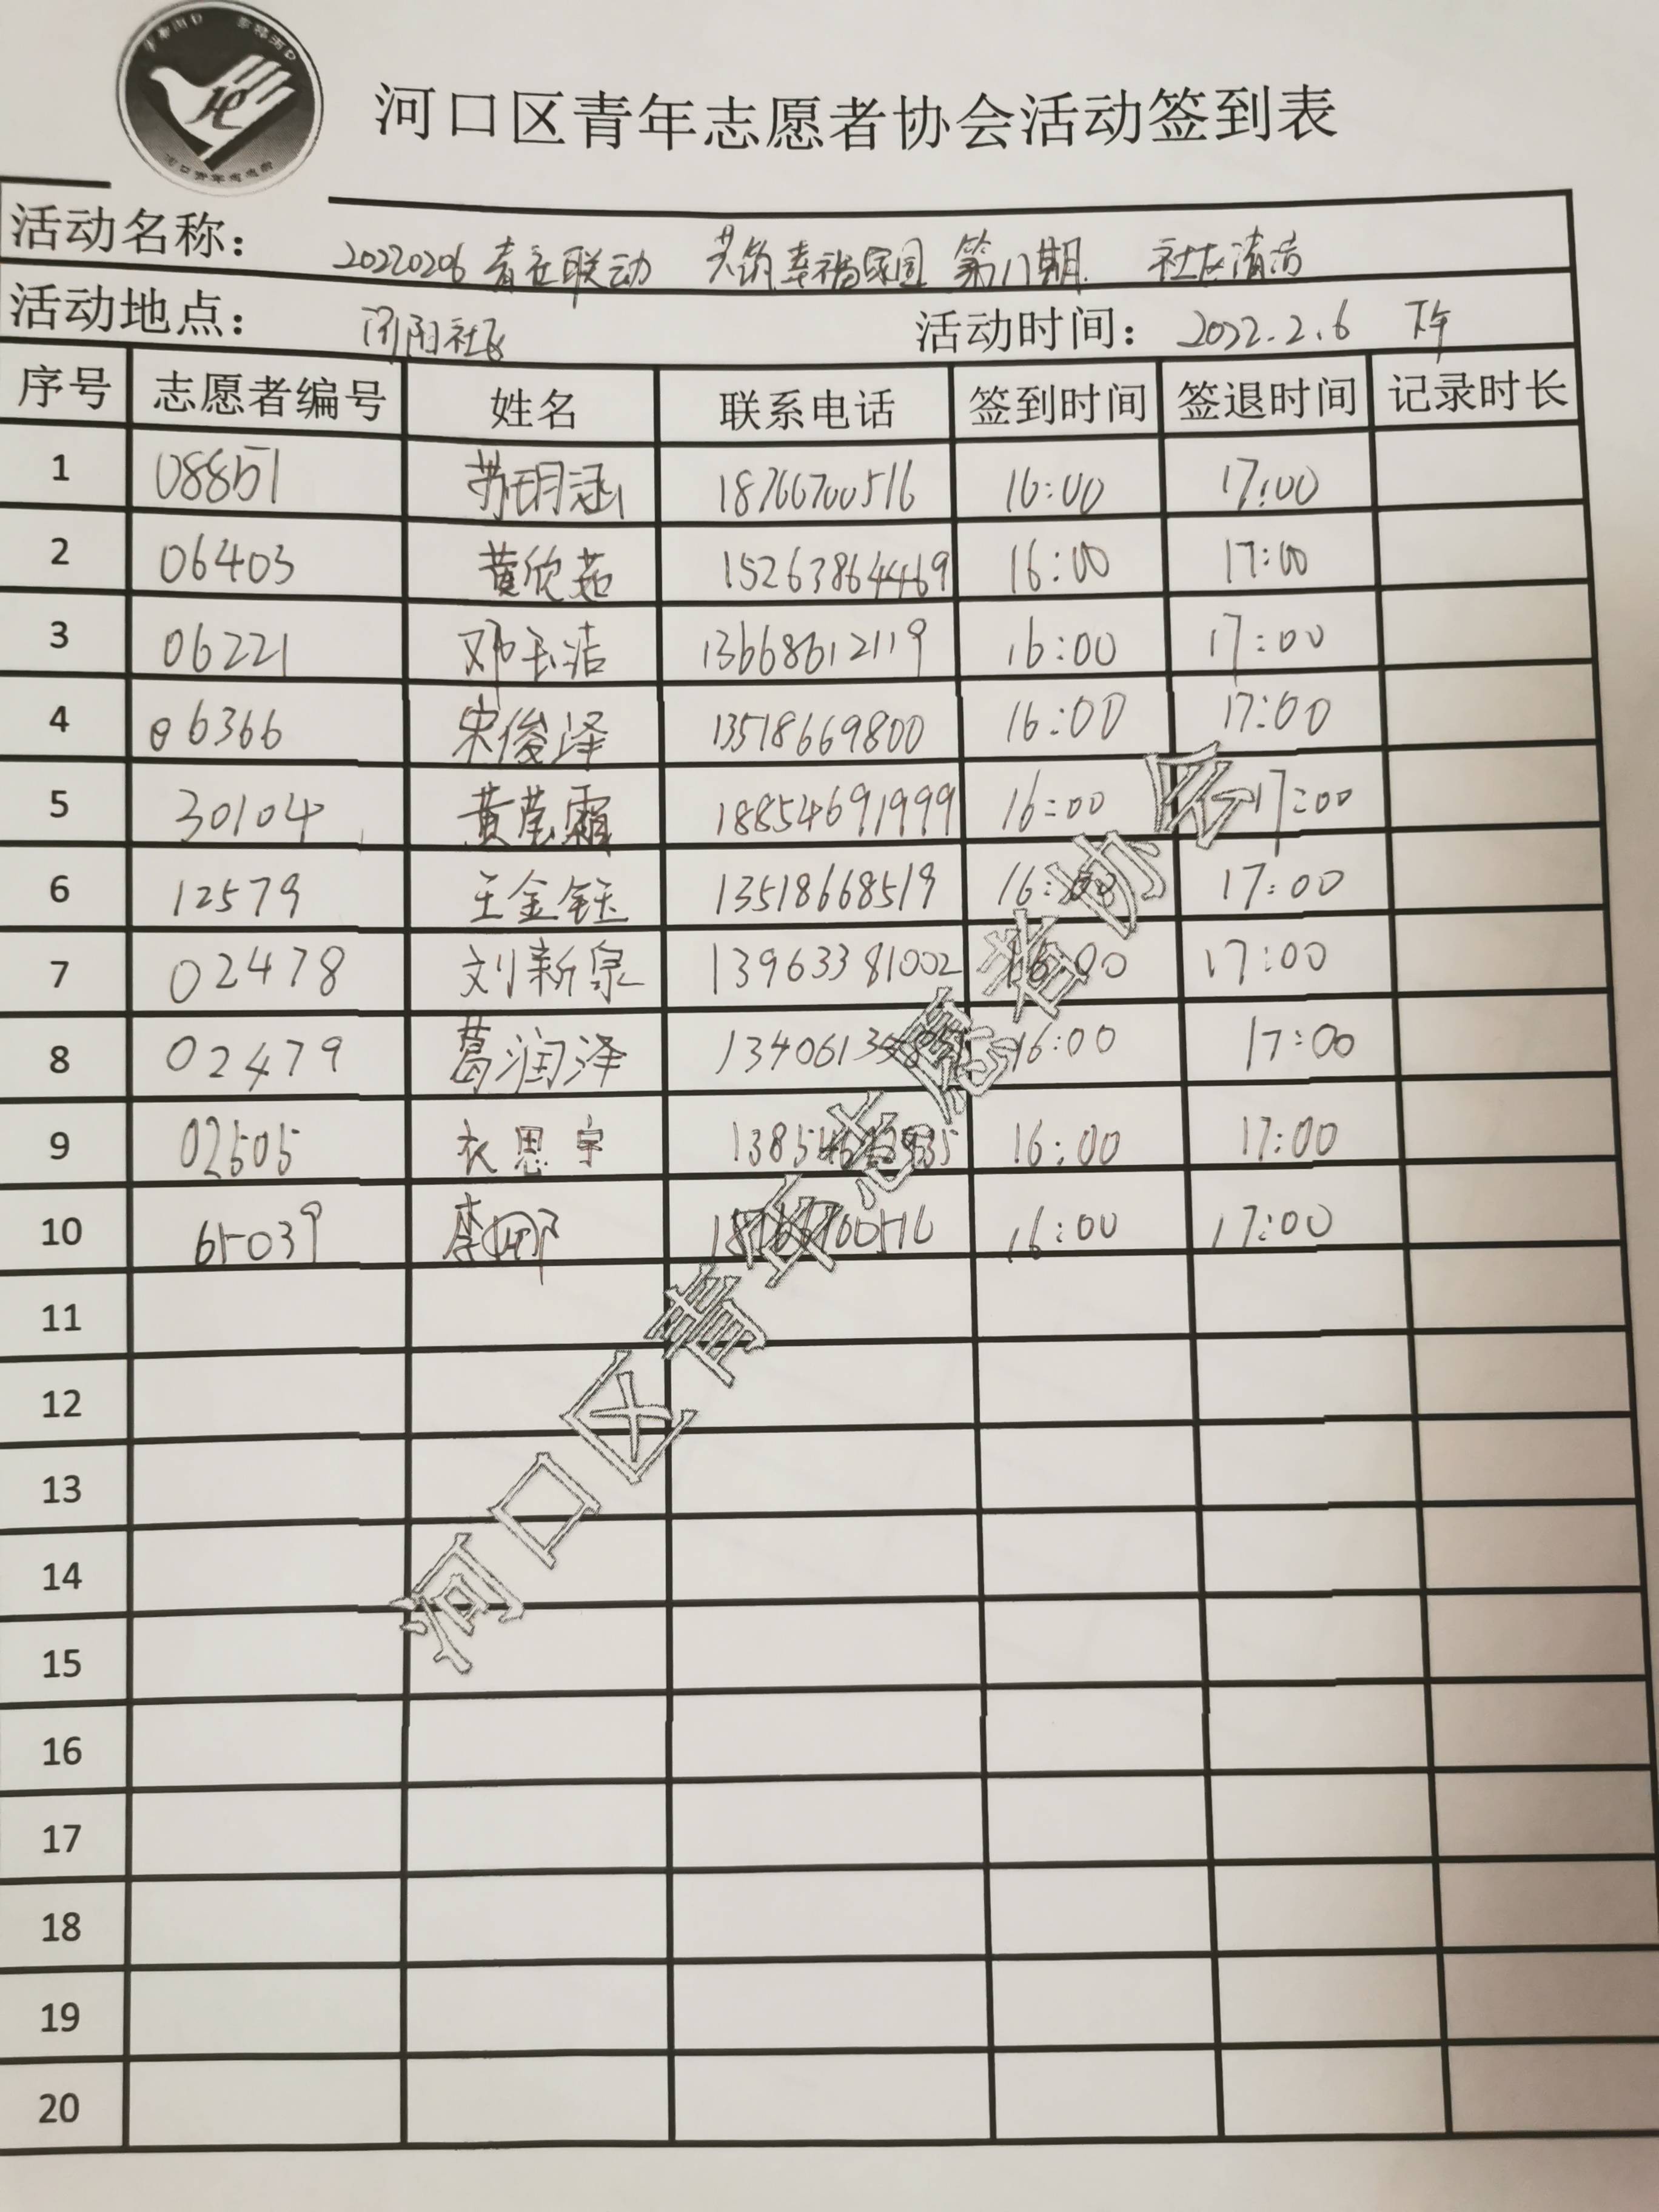 河口区青年志愿者协会活动签到表
活动名称： 20220206 青社联动 共筑幸福家园 第八期 社区清洁
活动地点： 社区 活动时间： 2022.2.6 下午
序号 志愿者编号 姓名 联系电话 签到时间 签退时间 记录时长
1 08851 苏玥涵 18766700516 16:00 17:00
2 06403 黄欣茹 15263864469 16:00 17:00
3 06221 邓玉洁 13668612119 16:00 17:00
4 06366 宋俊泽 13518669800 16:00 17:00
5 30104 黄莹霜 18854691999 16:00 17:00
6 12579 王金钰 13518668519 16:00 17:00
7 02478 刘新泉 13963381002 16:00 17:00
8 02479 葛润泽 16:00 17:00
9 02505 衣思宇 16:00 17:00
10 65039 李娜 18766700516 16:00 17:00
11
12
13
14
15
16
17
18
19
20
河口区青年志愿者协会